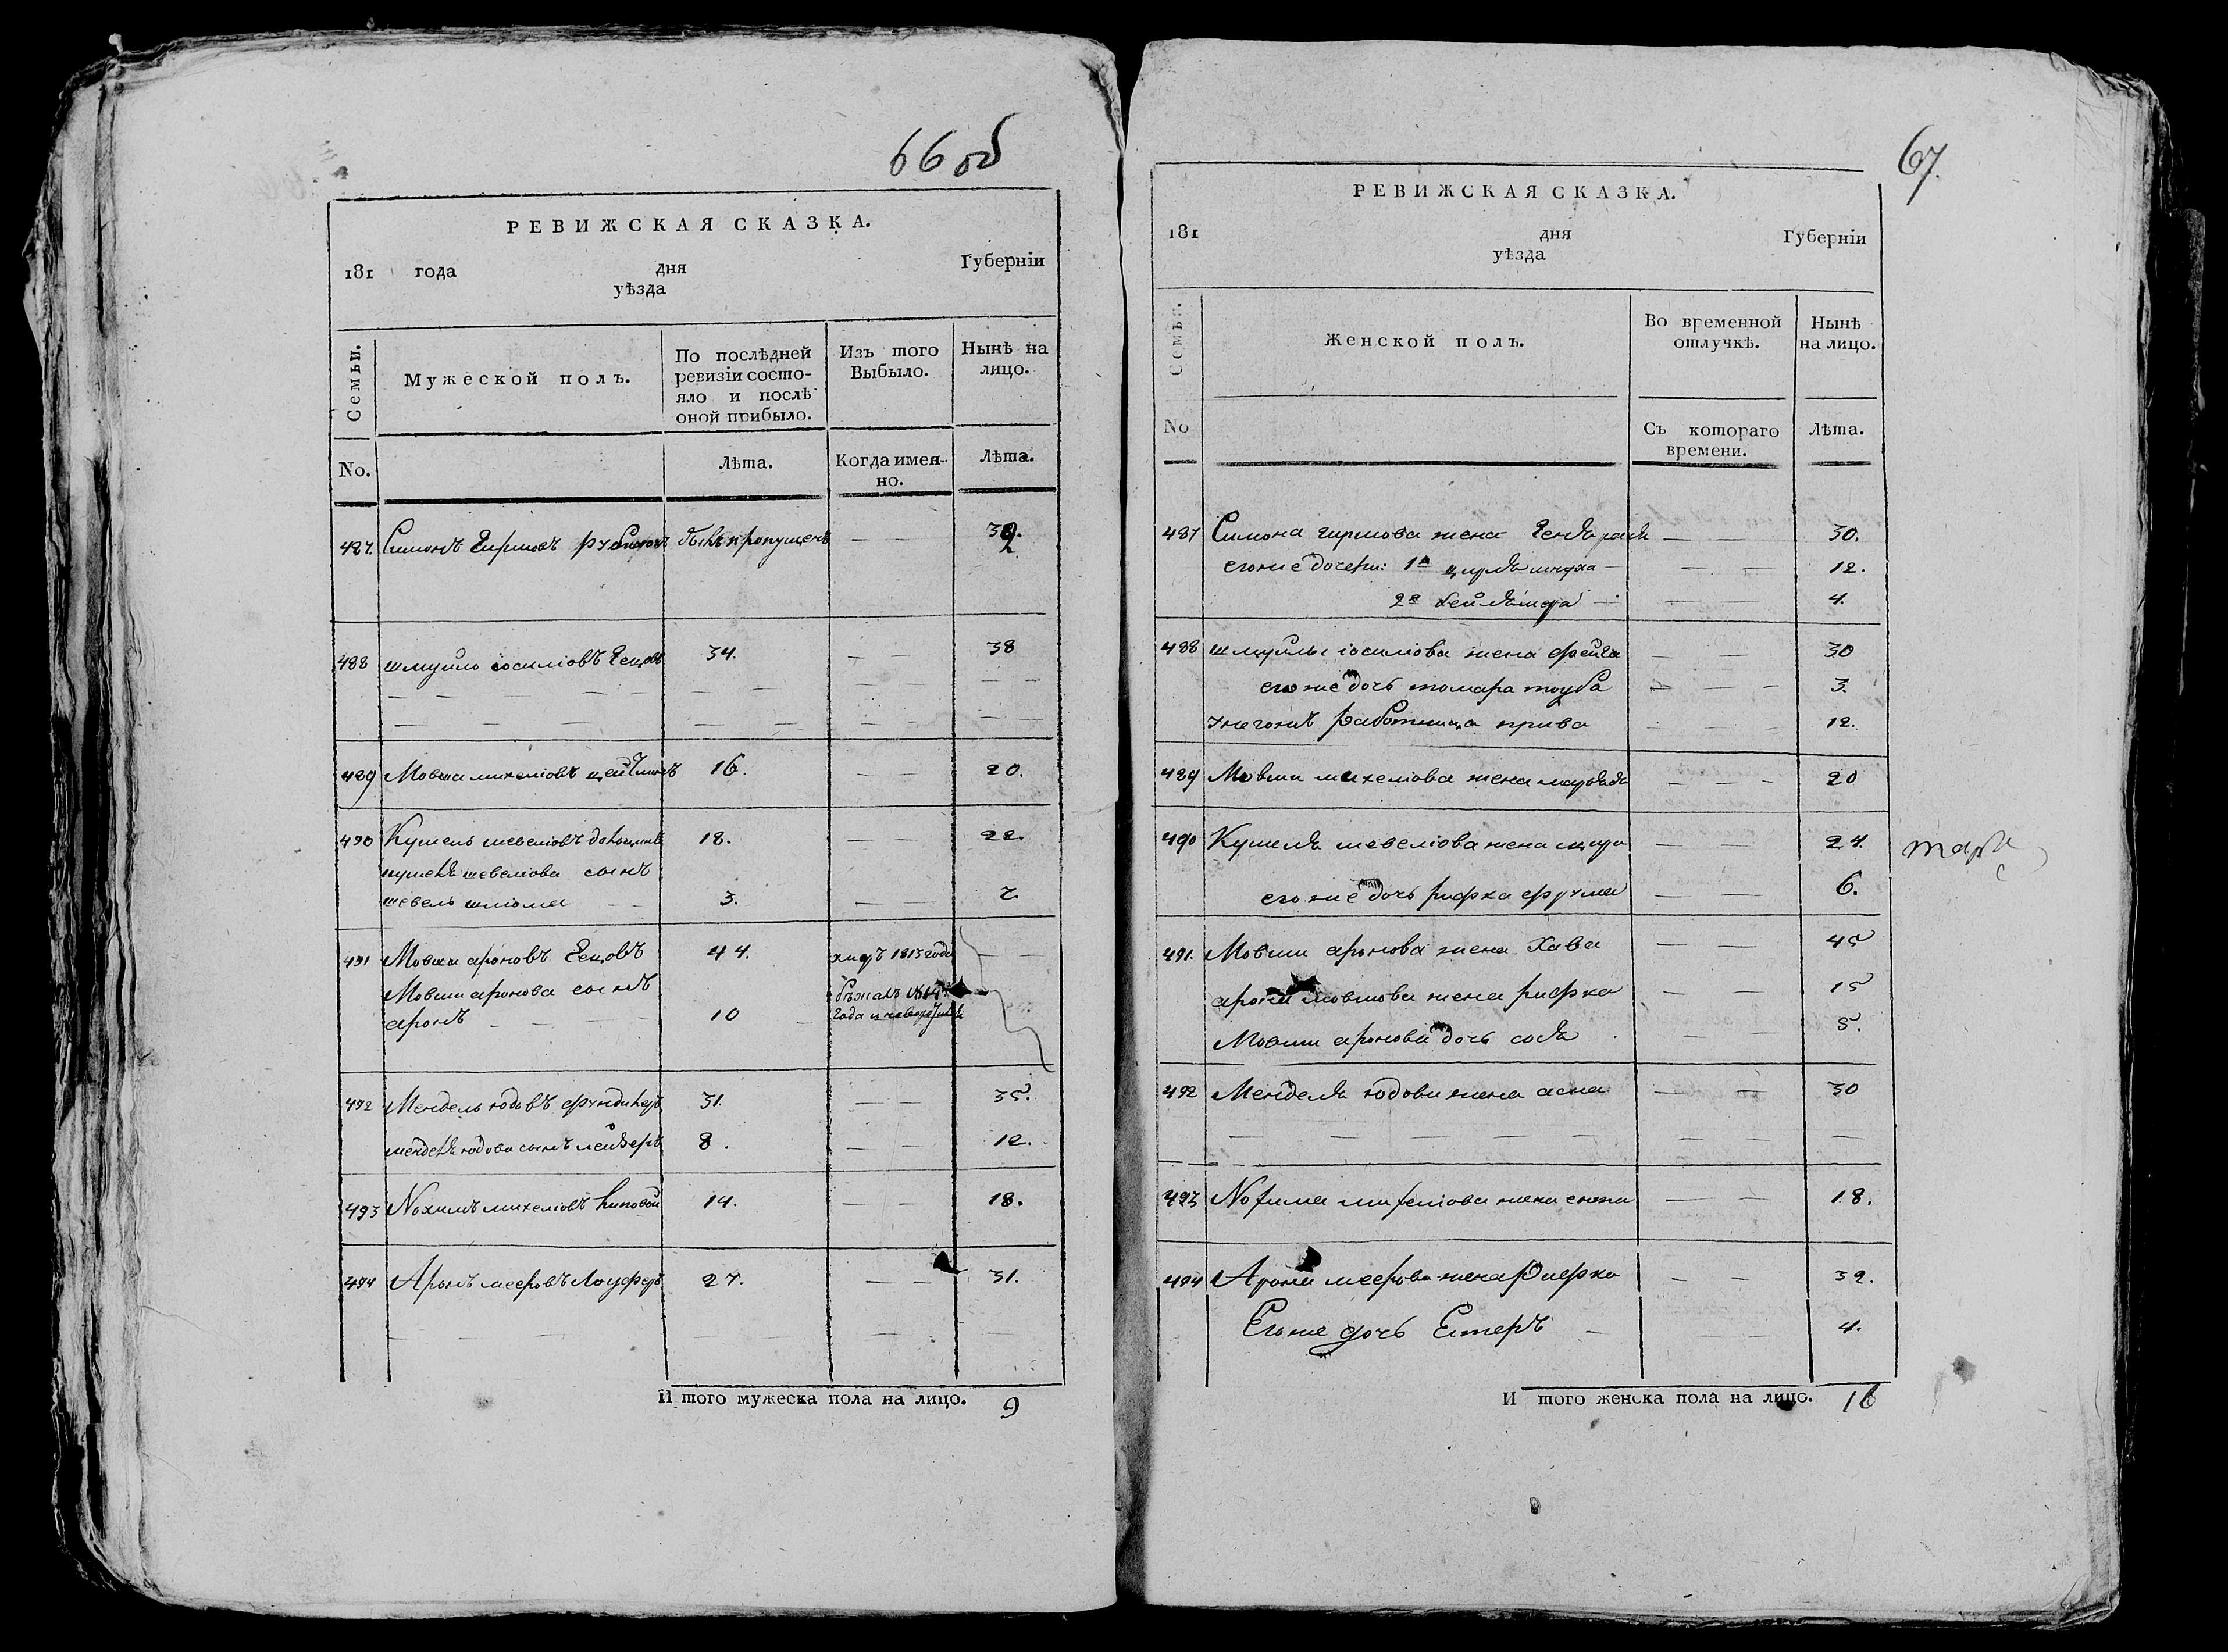 66 об
РЕВИЖСКАЯ СКАЗКА.
181 года дня Губерніи
уѣзда
Семьи. Мужеской полъ. По послѣдней ревизіи состояло и послѣ оной прибыло. Изъ того Выбыло. Нынѣ на лицо.
No. Лѣта. Когда именно. Лѣта.
487. Симонъ Гиршовъ пропущенъ — —
488 шмуйло іосиліовъ Гецовъ 34. — — 38
489 Мовша михеліовъ 16. — — 20.
490 Кушель шевеліовъ 18. — — 22.
кушеля шевеліова сынъ
шевель шліома — — 3. — — 7
491 Мовша ароновъ Гецовъ 44. 1813 года — —
Мовши аронова сынъ бѣжалъ 1814
аронъ — — — 10 года
492 Мендель юдовъ 31. — — 35.
менделя юдова сынъ лейзеръ 8. — — 12.
493 Нохимъ михеліовъ 14. — — 18.
494 Аронъ мееровъ 27. — — 31.
И того мужеска пола на лицо. 9
67.
РЕВИЖСКАЯ СКАЗКА.
181 дня Губерніи
уѣзда
Семьи. Женской полъ. Во временной отлучкѣ. Нынѣ на лицо.
No Съ котораго времени. Лѣта.
487 Симона гиршова жена — — 30.
его же дочери: 1я — — 12.
2я — — 4.
488 шмуйлы іосиліова жена фейга — — 30
его же дочь томара тоуба — — — 3.
работница 12.
489 Мовши михеліова жена — — — 20
490 Кушеля шевеліова жена — — 24.
его же дочь рифка фрума — — 6.
491. Мовши аронова жена Хава — — 45
арона мовшова жена рифка — — 15
Мовши аронова дочь — 5.
492 Менделя юдова жена асна — — 30
493 Нохима михеліова жена — — 18.
494 Арона меерова жена Рифка — — 32.
Его же дочь Естеръ — — — 4.
И того женска пола на лицо. 16